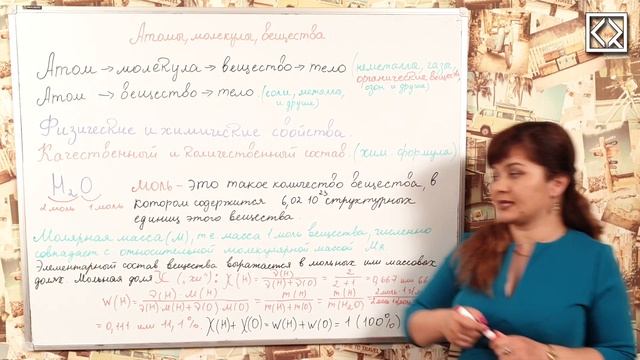 Атомы, молекулы, вещества
Атом → молекула → вещество → тело (неметаллы, газы,
органические вещества,
озон и другие)
Атом → вещество → тело (соли, металлы,
и другие)
Физические и химические свойства.
Качественный и количественный состав. (хим. формула)
H₂O
2 моль 1 моль
Моль – это такое количество вещества, в
котором содержится 6,02·10²³ структурных
единиц этого вещества.
Молярная масса (М), т.е. масса 1 моль вещества, численно
совпадает с относительной молекулярной массой Mr
Элементарный состав вещества выражается в мольных или массовых
долях. Мольная доля χ ("хи"): χ(H) = ν(H) / ν(H)+ν(O) = 2 / 2+1 = 0,667 или
W(H) = ν(H)·M(H) / ν(H)·M(H)+ν(O)·M(O) = m(H) / m(H)+m(O) = m(H) / m(H₂O) =
= 0,111 или 11,1%. χ(H)+χ(O)=W(H)+W(O)=1 (100%)